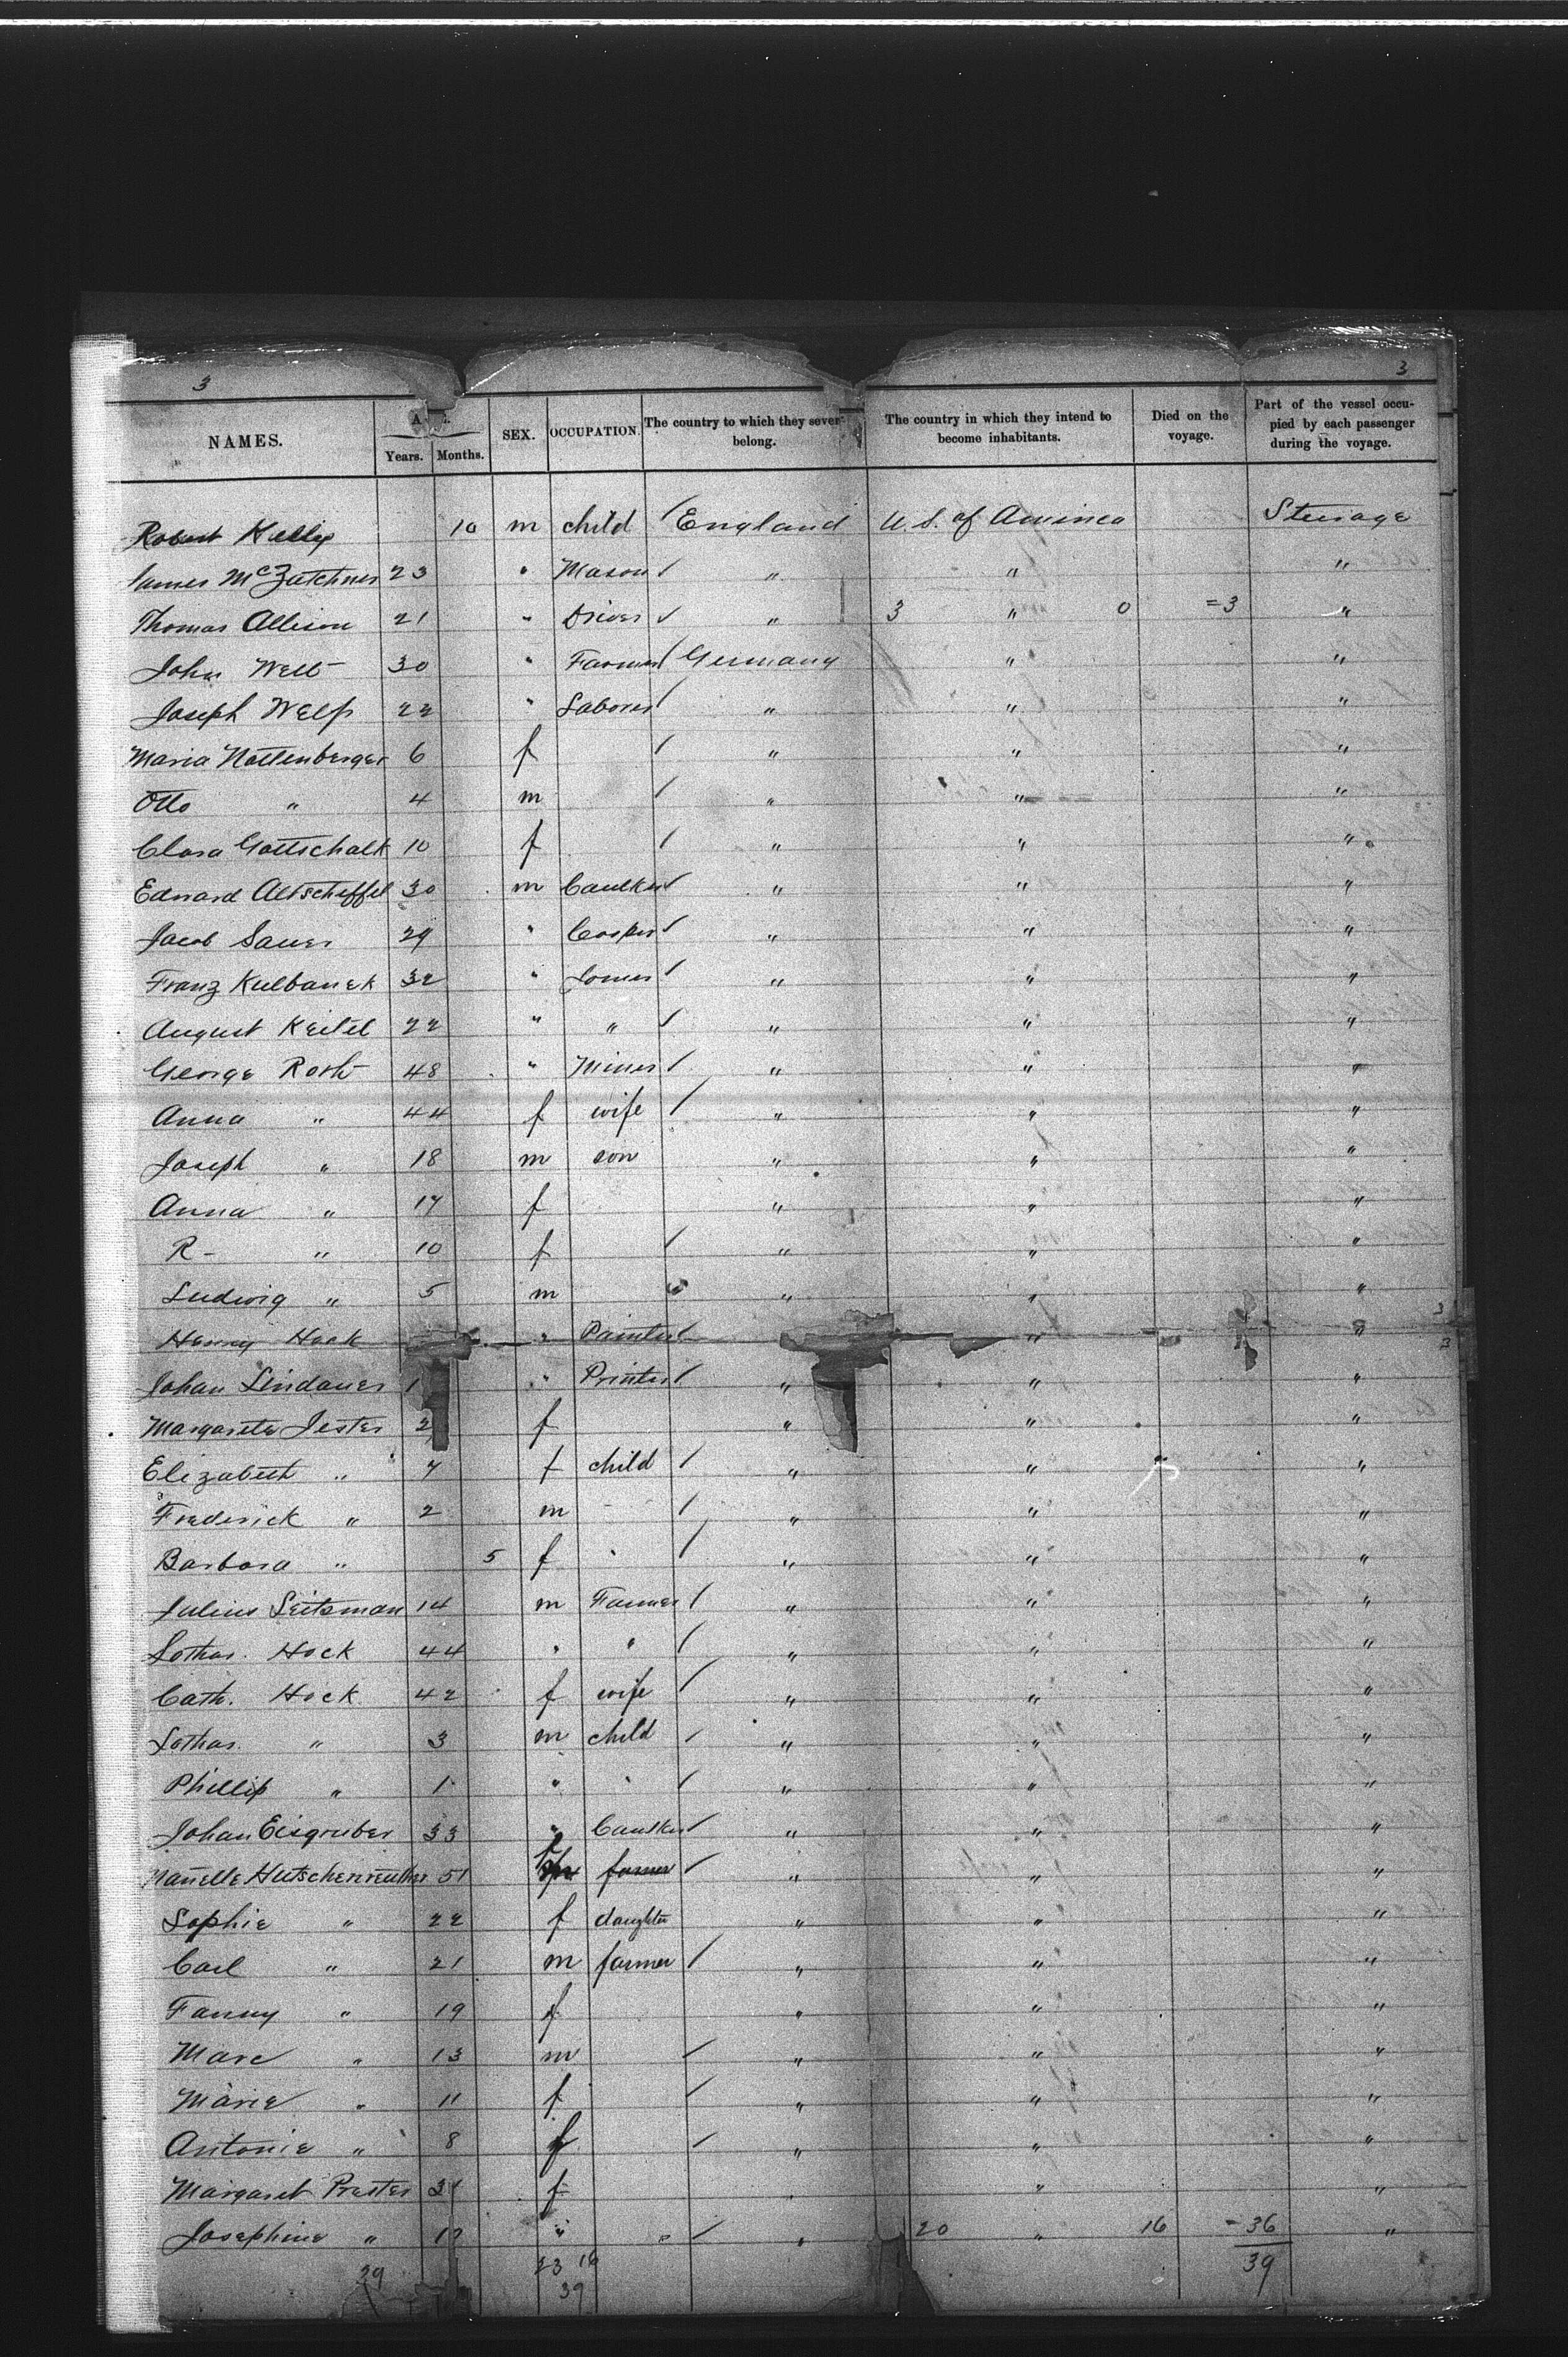 3 3
NAMES. A SEX. OCCUPATION. The country to which they sever- belong. The country in which they intend to become inhabitants. Died on the voyage. Part of the vessel occu- pied by each passenger during the voyage.
Years. Months.
Robert 10 m child / England U.S. of America Steerage
James 23 " Mason / " " "
Thomas Allison 21 " Driver / " 3 " 0 =3 "
John Welt 30 " Farmer / Germany " "
Joseph Welp 22 " Laborer / " " "
Maria Nottenberger 6 f / " " "
Otto " 4 m / " " "
Clara Gottschalk 10 f / " " "
Edward Altscheffel 30 m Caulker / " " "
Jacob Sauer 29 " Cooper / " " "
Franz Kulbanek 32 " / " " "
August Keitel 22 " " / " " "
George Roth 48 " Miner / " " "
Anna " 44 f wife / " " "
Joseph " 18 m son " " "
Anna " 17 f " " "
R- " 10 f / " " "
Ludwig " 5 m " " "
Henry Hock " Painter / " "
Johan Lindauer 1 " Printer / " " "
Margareta Jester 2 f " " "
Elizabeth " 7 f child / " " "
Frederick " 2 m - / " " "
Barbara " 5 f " / " " "
Julius Leitzman 14 m Farmer / " " "
Lothar. Hock 44 " " / " " "
Cath. Hock 42 f wife / " " "
Lothar. " 3 m child / " " "
Phillip " 1 " " / " " "
Johan Eisgruber 33 " Caulker / " " "
Nanette Hutschenreuther 51 f farmer / " " "
Sophie " 22 f daughter " " "
Carl " 21 m farmer / " " "
Fanny " 19 f " " "
Marc " 13 m / " " "
Marie " 11 f / " " "
Antonie " 8 f / " " "
Margaret Prester f " " "
Josephine " " / " 20 " 16 -36 "
39 23 16 39
39